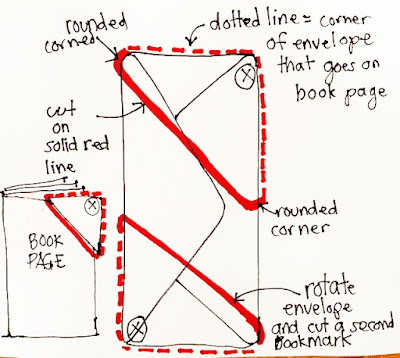 rounded
corner
dotted line = corner
of envelope
that goes on
book page
X
cut
on
solid red
line
X
BOOK
PAGE
rounded
corner
rotate
envelope
and cut a second
bookmark
X